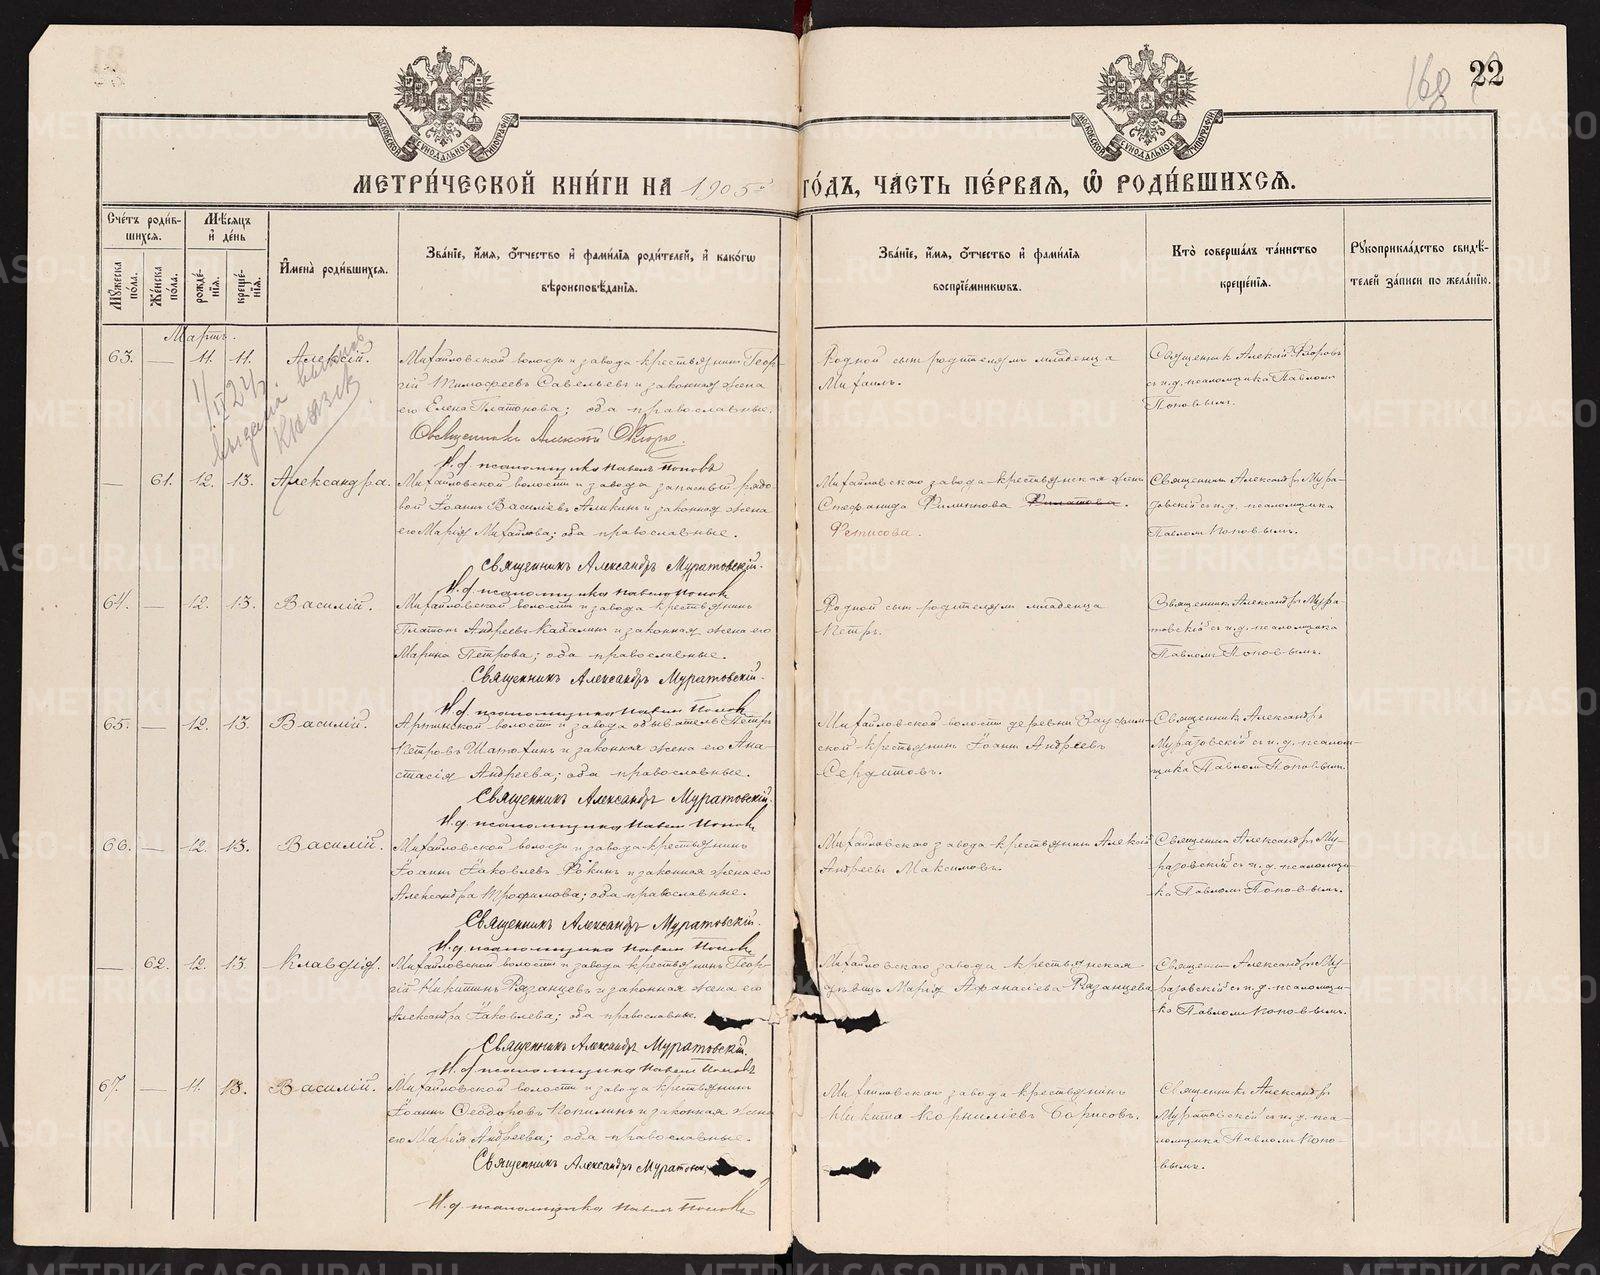 22
168
МОСКОВСКОЙ СѴНОДАЛЬНОЙ ТИПОГРАФІИ
МОСКОВСКОЙ СѴНОДАЛЬНОЙ ТИПОГРАФІИ
МЕТРИ́ЧЕСКОЙ КНИ́ГИ НА 1905й ГО́ДЪ, ЧА́СТЬ ПЕ́РВАЯ, Ѡ РОДИ́ВШИХСЯ.
Сче́тъ роди́в-
шихся.
Мꙋ́жеска по́ла.
Же́нска по́ла.
Мѣ́сяцъ
и де́нь
рожде́-
нія.
креще́-
нія.
Имена̀ роди́вшихся.
Зва́ніе, и́мя, о́тчество и фами́лія роди́телей, и како́гѡ
вѣроисповѣ́данія.
Зва́ніе, и́мя, о́тчество и фами́лія
воспріе́мникѡвъ.
Кто̀ соверша́лъ та́инство
креще́нія.
Рꙋкоприкла́дство свидѣ́-
телей за́писи по жела́нію.
Мартъ.
63. — 11. 11. Алексій.
Михайловской волости и завода крестьянинъ Геор-
гій Тимофеевъ Савельевъ и законная жена
его Елена Платонова; оба православные.
Священникъ Алексій
И. д. псаломщика Павелъ Поповъ
Родной сынъ родителямъ младенца
Михаилъ.
Священникъ Алексій Флоровъ
съ и. д. псаломщика Павломъ
Поповымъ.
выдана выпись
— 61. 12. 13. Александра.
Михайловской волости и завода запасный рядо-
вой Іоаннъ Василіевъ Аликинъ и законная жена
его Марія Михайлова; оба православные.
Священникъ Александръ Муратовскій.
И. д. псаломщика Павелъ Поповъ
Михайловскаго завода крестьянская
Стефанида Филиппова Филатова.
Фетисова.
Священникъ Александръ Мура-
товскій съ и. д. псаломщика
Павломъ Поповымъ.
64. — 12. 13. Василій.
Михайловской волости и завода крестьянинъ
Платонъ Андреевъ Кабалинъ и законная жена его
Марина Петрова; оба православные.
Священникъ Александръ Муратовскій.
И. д. псаломщика Павелъ Поповъ
Родной сынъ родителямъ младенца
Петръ.
Священникъ Александръ Мура-
товскій съ и. д. псаломщика
Павломъ Поповымъ.
65. — 12. 13. Василій.
Артинской волости и завода обыватель Петръ
Петровъ Шатохинъ и законная жена его Ана-
стасія Андреева; оба православные.
Священникъ Александръ Муратовскій.
И. д. псаломщика Павелъ Поповъ
Михайловской волости деревни
ской крестьянинъ Іоаннъ Андреевъ
Сердитовъ.
Священникъ Александръ
Муратовскій съ и. д. псалом-
щика Павломъ Поповымъ
66. — 12. 13. Василій.
Михайловской волости и завода крестьянинъ
Іоаннъ Іаковлевъ Фокинъ и законная жена его
Александра Трофимова; оба православные.
Священникъ Александръ Муратовскій.
И. д. псаломщика Павелъ Поповъ
Михайловскаго завода крестьянинъ Алексій
Андреевъ Максимовъ.
Священникъ Александръ Му-
ратовскій съ и. д. псаломщи-
ка Павломъ Поповымъ.
— 62. 12. 13. Клавдія.
Михайловской волости и завода крестьянинъ Геор-
гій Никитинъ Рязанцевъ и законная жена его
Александра Іаковлева; оба православные.
Священникъ Александръ Муратовскій.
И. д. псаломщика Павелъ Поповъ
Михайловскаго завода крестьянская
дѣвица Марія Афанасіева Рязанцева
Священникъ Александръ Му-
ратовскій съ и. д. псаломщи-
ка Павломъ Поповымъ.
67. — 11. 13. Василій.
Михайловской волости и завода крестьянинъ
Іоаннъ Феодоровъ Копылинъ и законная жена
его Марія Андреева; оба православные.
Священникъ Александръ Муратовск
И. д. псаломщика Павелъ Поповъ
Михайловскаго завода крестьянинъ
Никита Корниліевъ Борисовъ.
Священникъ Александръ
Муратовскій съ и. д. пса-
ломщика Павломъ Попо-
вымъ.
METRIKI.GASO-URAL.RU